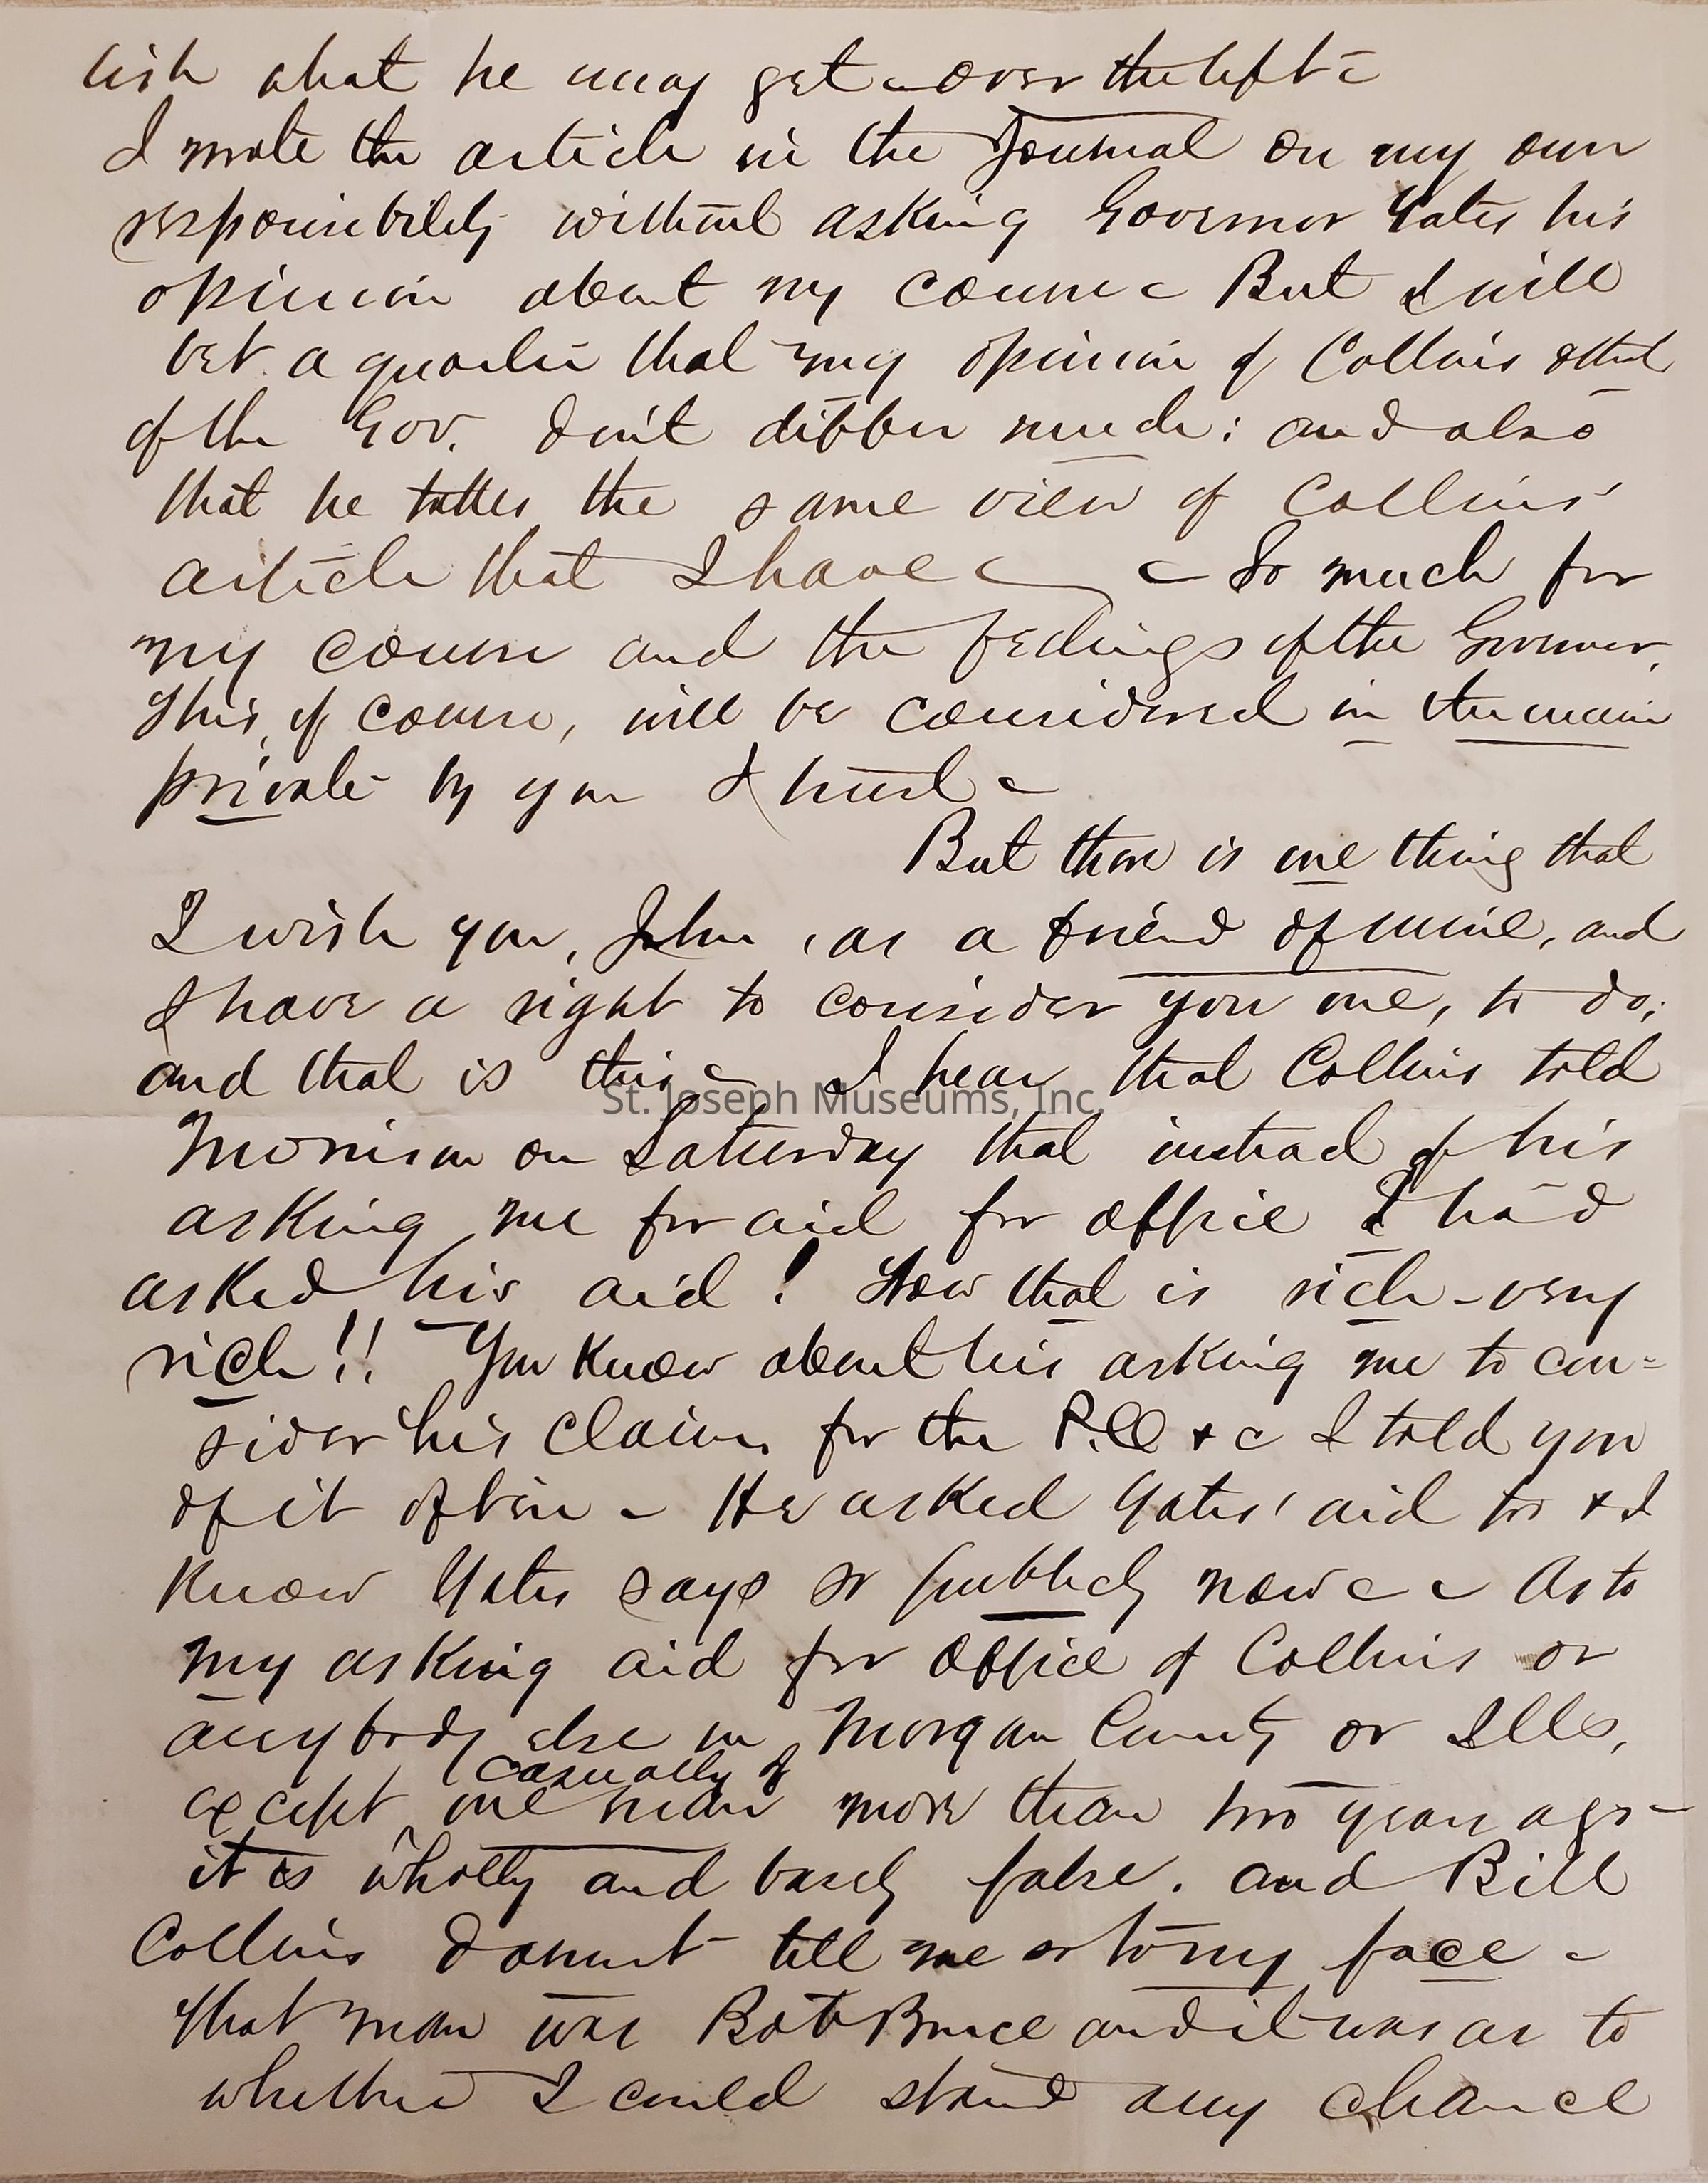 lish what he may get – over the left –
I wrote the article in the Journal on my own
responsibility without asking Governor Yates his
opinion about my course – But I will
bet a quarter that my opinion of Collins & that
of the Gov. don't differ much: and also
that he takes the same view of Collins'
article that I have – – So much for
my course and the feelings of the Governor.
This, of course, will be considered in the main
private by you I trust –
But there is one thing that
I wish you, John, as a friend of mine, and
I have a right to consider you one, to do;
and that is this – I hear that Collins told
St. Joseph Museums, Inc.
Morrison on Saturday that instead of his
asking me for aid for office I had
asked his aid! Now that is rich – very
rich!! You know about his asking me to con=
sider his claims for the P.O. &c I told you
of it often – He asked Yates' aid too & I
know Yates says so publicly now – – As to
my asking aid for office of Collins or
anybody else in Morgan County or Ills,
casually of
except one man more than two years ago –
it is wholly and basely false. and Bill
Collins dare not tell me so to my face –
That man was Bob Bruce and it was as to
whether I could stand any chance